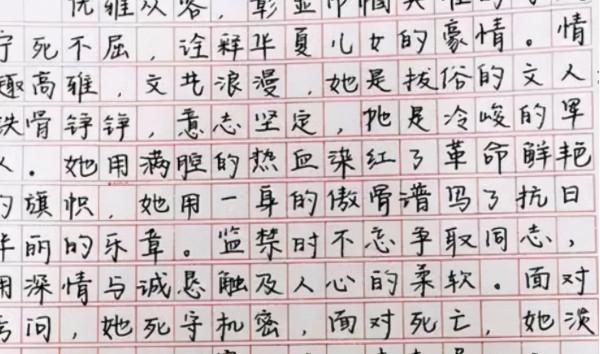 优雅从容，彰显巾帼英
宁死不屈，诠释华夏儿女的豪情。情
趣高雅，文艺浪漫，她是拔俗的文人
铁骨铮铮，意志坚定，她是冷峻的军
人．她用满腔的热血染红了革命鲜艳
的旗帜，她用一身的傲骨谱写了抗日
华丽的乐章。监禁时不忘争取同志，
用深情与诚恳触及人心的柔软．面对
问，她死守机密，面对死亡，她淡